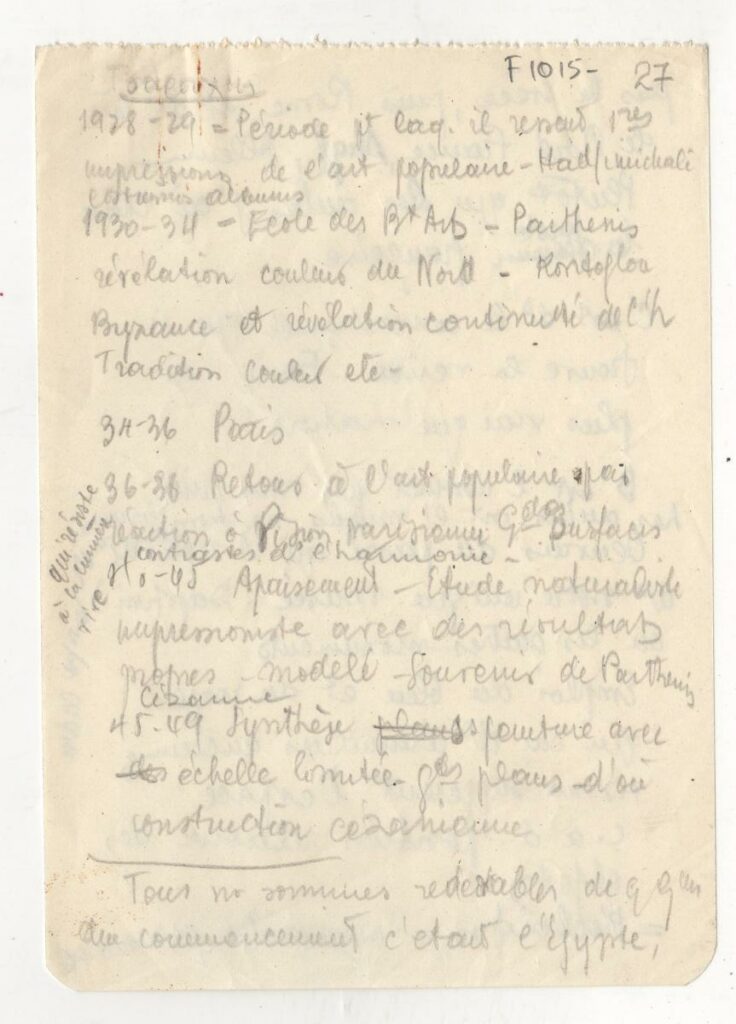 F1015-
27
Tsarouchis
1928-29 = Période il ressent 1res
impressions de l'art populaire - Hadjimichali
costumes albums
1930-34 - Ecole des Bx Arts - Parthenis
révélation couleurs du Nord - Kontoglou
Byzance et révélation continuité de l'h
Tradition couleur etc-
34-36 Paris
36-38 Retour à l'art populaire par
réaction à Vision parisienne Gdes Surfaces
contrastes de l'harmonie -
40-45 Apaisement - Etude naturaliste
impressioniste avec des résultats
propres - modelé - Souvenir de Parthenis
Cézanne
45-49 Synthèse plans peinture avec
des échelle limitée - gds plans - d'où
construction cézanienne
Tous ns sommes redevables de
Au commencement c'etait l'Egypte,
qui résiste
à la lumière